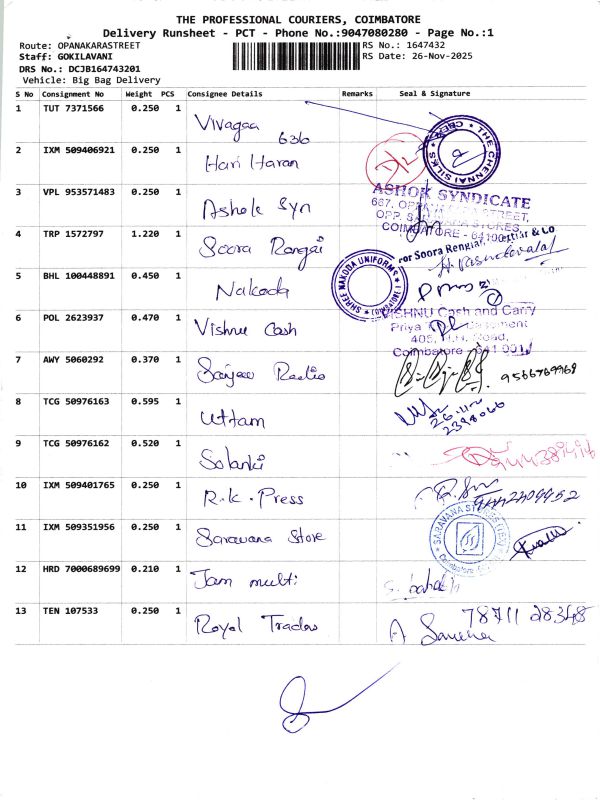 THE PROFESSIONAL COURIERS, COIMBATORE
Delivery Runsheet - PCT - Phone No.:9047080280 - Page No.:1
Route: OPANAKARASTREET
RS No.: 1647432
Staff: GOKILAVANI
RS Date: 26-Nov-2025
DRS No.: DCJB164743201
Vehicle: Big Bag Delivery
S No Consignment No Weight PCS Consignee Details Remarks Seal & Signature
1 TUT 7371566 0.250 1 Vivagaa 636
THE CHENNAI SILKS
2 IXM 509406921 0.250 1 Hari Haran
3 VPL 953571483 0.250 1 Ashok Syn
ASHOK SYNDICATE
667, OPPANAKARA STREET,
OPP. SARAVANA STORES,
COIMBATORE - 641001
4 TRP 1572797 1.220 1 Soora Rangai
For Soora Rengai & Co
5 BHL 100448891 0.450 1 Nakoda
SHREE NAKODA UNIFORMS
6 POL 2623937 0.470 1 Vishnu Cash
VISHNU Cash and Carry
Priya
405, N.H. Road,
Coimbatore - 641 001
7 AWY 5060292 0.370 1 Sanjeev Radio
9566769968
8 TCG 50976163 0.595 1 Uttam
26.11.2
2398066
9 TCG 50976162 0.520 1 Solanki
10 IXM 509401765 0.250 1 R.K. Press
11 IXM 509351956 0.250 1 Saravana Store
SARAVANA STORES
Coimbatore
12 HRD 7000689699 0.210 1 Jam multi
13 TEN 107533 0.250 1 Royal Traders
78711 28348